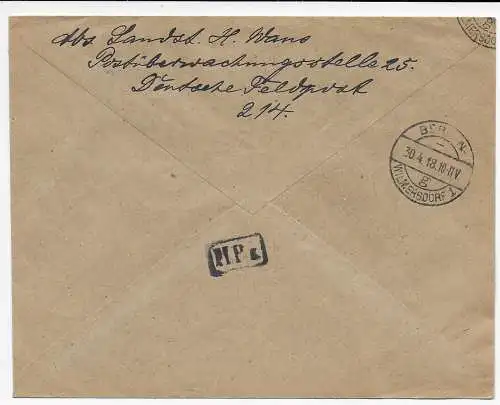 Abs. Landst. H. Wans
Postüberwachungsstelle 25.
Deutsche Feldpost
214.
BERLIN-
30.4.18.10-11V
WILMERSDORF 1
g